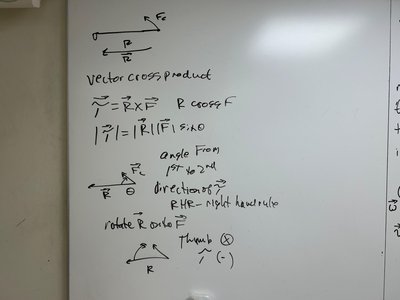 Fc
R
R
vector cross product
τ = R x F R cross F
|τ| = |R||F| sinθ
angle From
1st to 2nd
Fc
R θ
direction of τ
RHR - right hand rule
rotate R onto F
Thumb ⊗
τ (-)
R